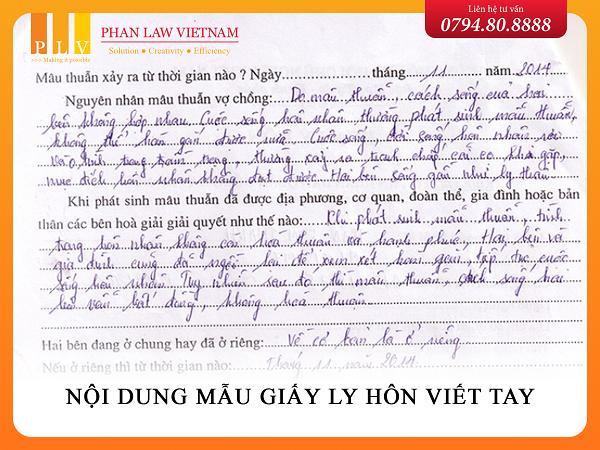 PLV
>>> Making it possible
PHAN LAW VIETNAM
Solution ● Creativity ● Efficiency
Liên hệ tư vấn
0794.80.8888
Mâu thuẫn xảy ra từ thời gian nào ? Ngày.................... tháng 11 năm 2014
Nguyên nhân mâu thuẫn vợ chồng: Do mâu thuẫn, cách sống của hai
bên không hợp nhau. Cuộc sống hôn nhân thường phát sinh mâu thuẫn,
không thể hàn gắn được nữa. Cuộc sống, đời sống hôn nhân rơi
vào tình trạng trầm trọng, thường xảy ra tranh chấp cãi cọ khi gặp,
mục đích hôn nhân không đạt được. Hai bên sống gần như ly thân
Khi phát sinh mâu thuẫn đã được địa phương, cơ quan, đoàn thể, gia đình hoặc bản
thân các bên hoà giải giải quyết như thế nào: Khi phát sinh mâu thuẫn, tình
trạng hôn nhân không còn hoà thuận và hạnh phúc, Hai bên và
gia đình cũng đã ngồi lại để xem xét hàn gắn, tiếp tục cuộc
sống hôn nhân. Tuy nhiên sau đó thì mâu thuẫn, cách sống hai
bên vẫn bất đồng, không hoà thuận
Hai bên đang ở chung hay đã ở riêng: Về cơ bản là ở riêng
Nếu ở riêng thì từ thời gian nào: Tháng 11 năm 2014
NỘI DUNG MẪU GIẤY LY HÔN VIẾT TAY